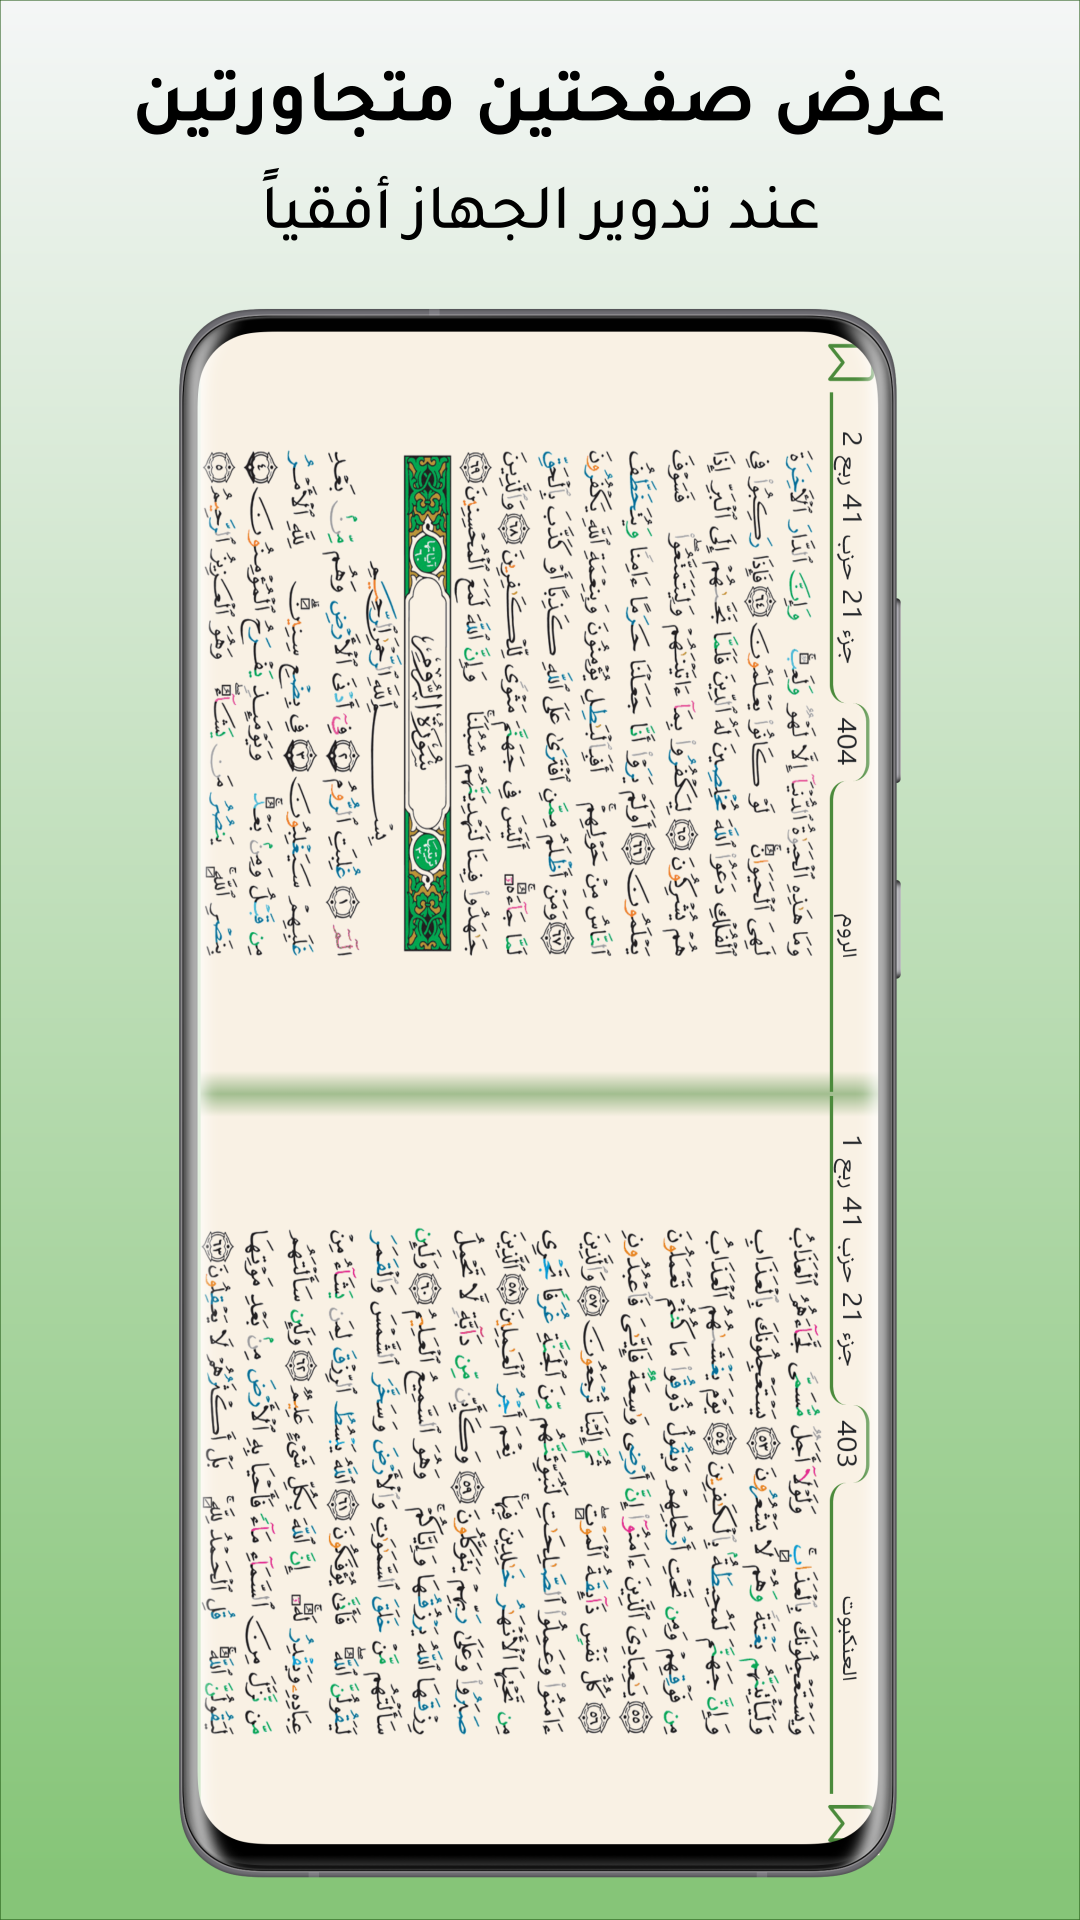 عرض صفحتين متجاورتين
عند تدوير الجهاز أفقياً
العنكبوت
403
جزء 21 حزب 41 ربع 1
وَيَسْتَعْجِلُونَكَ بِٱلْعَذَابِ ۚ وَلَوْلَآ أَجَلٌ مُّسَمًّى لَّجَآءَهُمُ ٱلْعَذَابُ
وَلَيَأْتِيَنَّهُم بَغْتَةً وَهُمْ لَا يَشْعُرُونَ ٥٣ يَسْتَعْجِلُونَكَ بِٱلْعَذَابِ
وَإِنَّ جَهَنَّمَ لَمُحِيطَةٌۢ بِٱلْكَـٰفِرِينَ ٥٤ يَوْمَ يَغْشَىٰهُمُ ٱلْعَذَابُ
مِن فَوْقِهِمْ وَمِن تَحْتِ أَرْجُلِهِمْ وَيَقُولُ ذُوقُوا۟ مَا كُنتُمْ تَعْمَلُونَ
٥٥ يَـٰعِبَادِىَ ٱلَّذِينَ ءَامَنُوٓا۟ إِنَّ أَرْضِى وَٰسِعَةٌ فَإِيَّـٰىَ فَٱعْبُدُونِ
٥٦ كُلُّ نَفْسٍ ذَآئِقَةُ ٱلْمَوْتِ ۖ ثُمَّ إِلَيْنَا تُرْجَعُونَ ٥٧ وَٱلَّذِينَ
ءَامَنُوا۟ وَعَمِلُوا۟ ٱلصَّـٰلِحَـٰتِ لَنُبَوِّئَنَّهُم مِّنَ ٱلْجَنَّةِ غُرَفًا تَجْرِى
مِن تَحْتِهَا ٱلْأَنْهَـٰرُ خَـٰلِدِينَ فِيهَا ۚ نِعْمَ أَجْرُ ٱلْعَـٰمِلِينَ ٥٨ ٱلَّذِينَ
صَبَرُوا۟ وَعَلَىٰ رَبِّهِمْ يَتَوَكَّلُونَ ٥٩ وَكَأَيِّن مِّن دَآبَّةٍ لَّا تَحْمِلُ
رِزْقَهَا ٱللَّهُ يَرْزُقُهَا وَإِيَّاكُمْ ۚ وَهُوَ ٱلسَّمِيعُ ٱلْعَلِيمُ ٦٠ وَلَئِن
سَأَلْتَهُم مَّنْ خَلَقَ ٱلسَّمَـٰوَٰتِ وَٱلْأَرْضَ وَسَخَّرَ ٱلشَّمْسَ وَٱلْقَمَرَ
لَيَقُولُنَّ ٱللَّهُ ۖ فَأَنَّىٰ يُؤْفَكُونَ ٦١ ٱللَّهُ يَبْسُطُ ٱلرِّزْقَ لِمَن يَشَآءُ مِنْ
عِبَادِهِۦ وَيَقْدِرُ لَهُۥٓ ۚ إِنَّ ٱللَّهَ بِكُلِّ شَىْءٍ عَلِيمٌ ٦٢ وَلَئِن سَأَلْتَهُم
مَّن نَّزَّلَ مِنَ ٱلسَّمَآءِ مَآءً فَأَحْيَا بِهِ ٱلْأَرْضَ مِنۢ بَعْدِ مَوْتِهَا
لَيَقُولُنَّ ٱللَّهُ ۚ قُلِ ٱلْحَمْدُ لِلَّهِ ۚ بَلْ أَكْثَرُهُمْ لَا يَعْقِلُونَ ٦٣
الروم
404
جزء 21 حزب 41 ربع 2
وَمَا هَـٰذِهِ ٱلْحَيَوٰةُ ٱلدُّنْيَآ إِلَّا لَهْوٌ وَلَعِبٌ ۚ وَإِنَّ ٱلدَّارَ ٱلْـَٔاخِرَةَ
لَهِىَ ٱلْحَيَوَانُ ۚ لَوْ كَانُوا۟ يَعْلَمُونَ ٦٤ فَإِذَا رَكِبُوا۟ فِى
ٱلْفُلْكِ دَعَوُا۟ ٱللَّهَ مُخْلِصِينَ لَهُ ٱلدِّينَ فَلَمَّا نَجَّىٰهُمْ إِلَى ٱلْبَرِّ إِذَا
هُمْ يُشْرِكُونَ ٦٥ لِيَكْفُرُوا۟ بِمَآ ءَاتَيْنَـٰهُمْ وَلِيَتَمَتَّعُوا۟ ۖ فَسَوْفَ
يَعْلَمُونَ ٦٦ أَوَلَمْ يَرَوْا۟ أَنَّا جَعَلْنَا حَرَمًا ءَامِنًا وَيُتَخَطَّفُ
ٱلنَّاسُ مِنْ حَوْلِهِمْ ۚ أَفَبِٱلْبَـٰطِلِ يُؤْمِنُونَ وَبِنِعْمَةِ ٱللَّهِ يَكْفُرُونَ
٦٧ وَمَنْ أَظْلَمُ مِمَّنِ ٱفْتَرَىٰ عَلَى ٱللَّهِ كَذِبًا أَوْ كَذَّبَ بِٱلْحَقِّ
لَمَّا جَآءَهُۥٓ ۚ أَلَيْسَ فِى جَهَنَّمَ مَثْوًى لِّلْكَـٰفِرِينَ ٦٨ وَٱلَّذِينَ
جَـٰهَدُوا۟ فِينَا لَنَهْدِيَنَّهُمْ سُبُلَنَا ۚ وَإِنَّ ٱللَّهَ لَمَعَ ٱلْمُحْسِنِينَ ٦٩
ترتيبها ٣٠ سُورَةُ الرُّومِ آياتها ٦٠
بِسْمِ ٱللَّهِ ٱلرَّحْمَـٰنِ ٱلرَّحِيمِ
الٓمٓ ١ غُلِبَتِ ٱلرُّومُ ٢ فِىٓ أَدْنَى ٱلْأَرْضِ وَهُم مِّنۢ بَعْدِ
غَلَبِهِمْ سَيَغْلِبُونَ ٣ فِى بِضْعِ سِنِينَ ۗ لِلَّهِ ٱلْأَمْرُ
مِن قَبْلُ وَمِنۢ بَعْدُ ۚ وَيَوْمَئِذٍ يَفْرَحُ ٱلْمُؤْمِنُونَ ٤
بِنَصْرِ ٱللَّهِ ۚ يَنصُرُ مَن يَشَآءُ ۖ وَهُوَ ٱلْعَزِيزُ ٱلرَّحِيمُ ٥